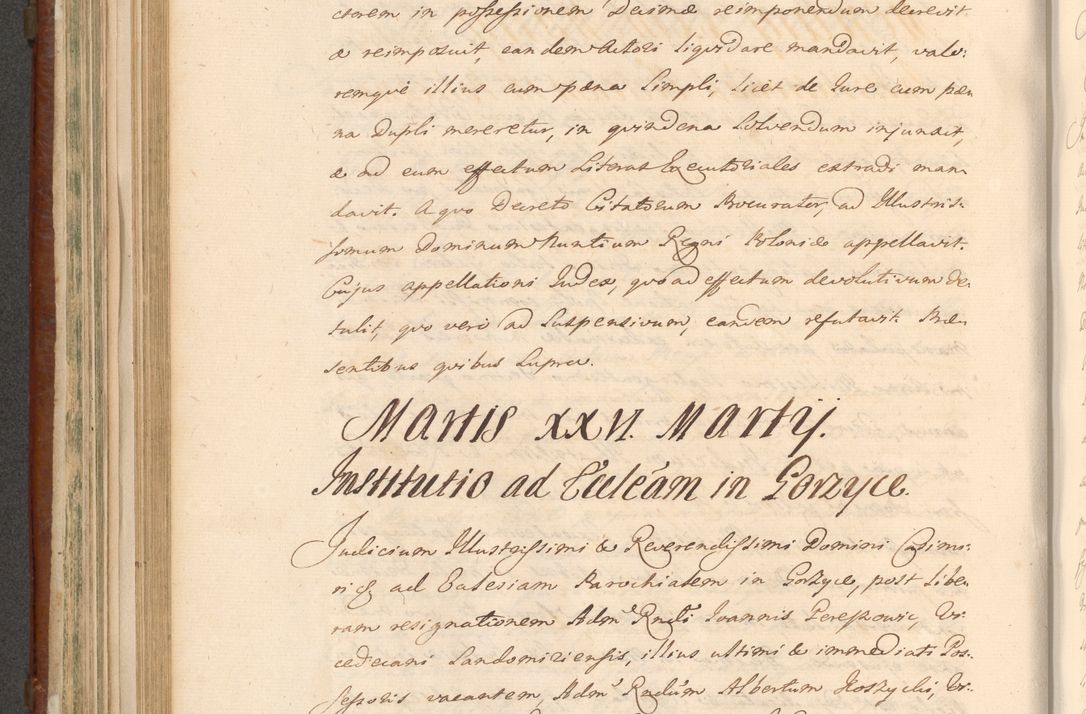 ctorem in possessionem Decimæ reimponendum decrevit
& reimposuit, eandem Actori liquidare mandavit, valo:
remqvè illius cum pæna Simpli, licèt de Iure cum pæ
na Dupli mereretur, in qvindena Solvendum injunxit,
& ad eum effectum Literas Executoriales extradi man
davit. A qvo Decreto Citatorum Procurator, ad Illustris:
simum Dominum Nuntium Regni Poloniæ appellavit.
Cujus appellationi Iudex, qvo ad effectum devolutivum de:
tulit, qvo verò ad Suspensivum, eandem refutavit. Præ
sentibus qvibus Supra.
Martis XXVI. Martij.
Institutio ad Ecclẽam in Gorzyce.
Judicium Illustrissimi & Reverendissimi Domini Casimi:
ri & ad Ecclesiam Parochialem in Gorzyce, post libe
ram resignationem Adm. Rndi Ioannis Pereszowic, Vi
cedecani Sandomiriensis, illius ultimi & immediati Pos:
sessoris vacantem, Adm. Rndum Albertum Koszycki,